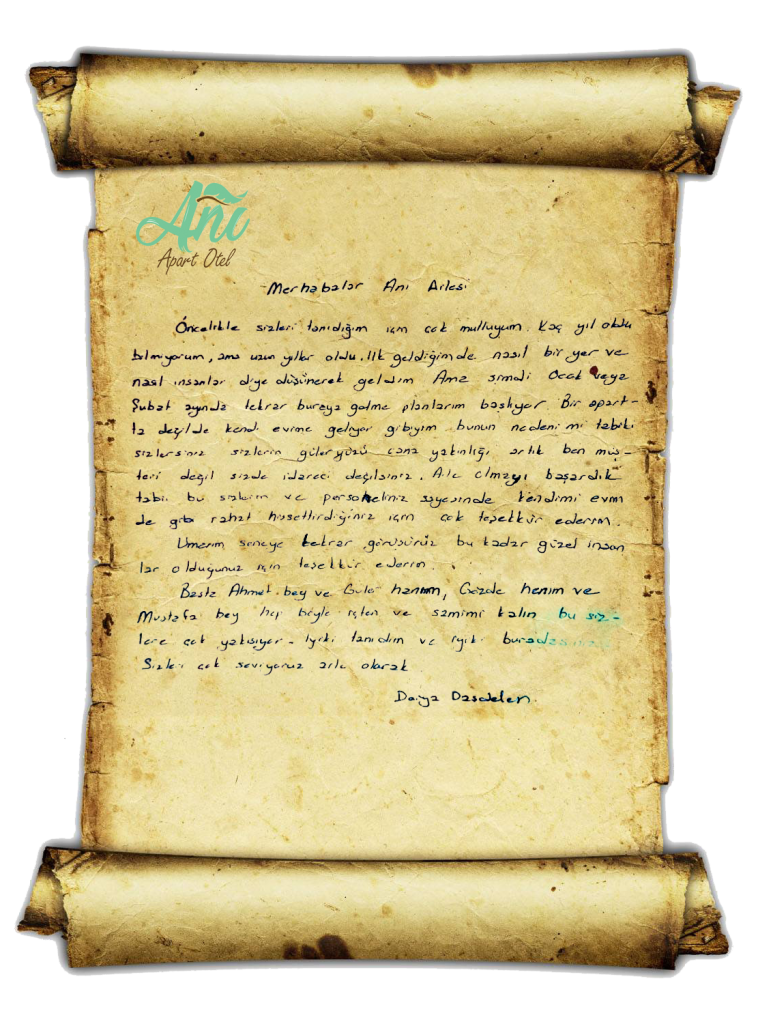 Anı
Apart Otel
Merhabalar Anı Ailesi
Öncelikle sizleri tanıdığım için çok mutluyum. Kaç yıl oldu
bilmiyorum, ama uzun yıllar oldu. İlk geldiğimde nasıl bir yer ve
nasıl insanlar diye düşünerek geldim Ama şimdi Ocak veya
Şubat ayında tekrar buraya gelme planlarım başlıyor. Bir apart-
ta değilde kendi evime geliyor gibiyim bunun nedeni mi tabiki
sizlersiniz sizlerin güleryüzü cana yakınlığı artık ben müş-
teri değil sizde idareci değilsiniz. Aile olmayı başardık
tabii bu sizlerin ve personeliniz sayesinde kendimi evim
de gibi rahat hissettirdiğiniz için çok teşekkür ederim.
Umarım seneye tekrar görüşürüz bu kadar güzel insan
lar olduğunuz için teşekkür ederim.
Başta Ahmet bey ve hanım, Gözde hanım ve
Mustafa bey hep böyle içten ve samimi kalın bu siz-
lere çok yakışıyor. İyiki tanıdım ve iyiki
Sizleri çok seviyoruz aile olarak.